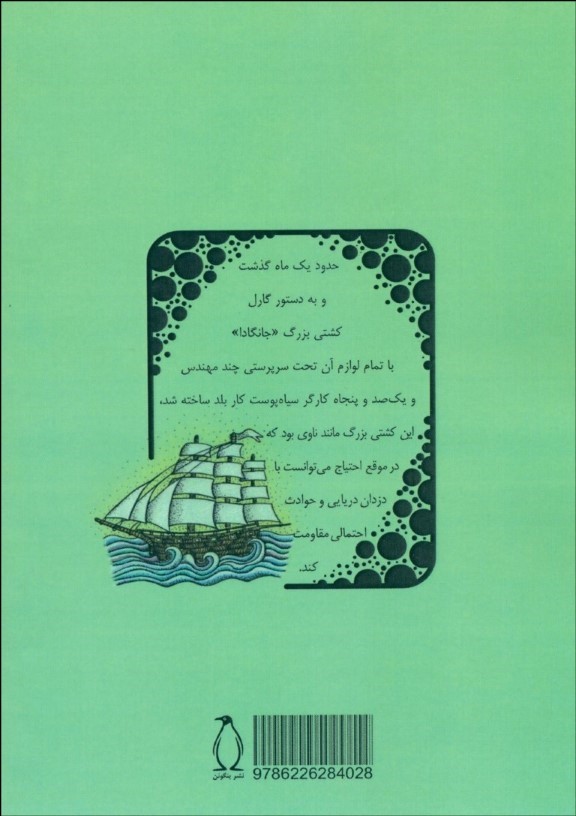 حدود یک ماه گذشت
و به دستور گارل
کشتی بزرگ «جانگادا»
با تمام لوازم آن تحت سرپرستی چند مهندس
و یک‌صد و پنجاه کارگر سیاه‌پوست کار بلد ساخته شد،
این کشتی بزرگ مانند ناوی بود که
در موقع احتیاج می‌توانست با
دزدان دریایی و حوادث
احتمالی مقاومت
کند.
نشر پنگوئن
9786226284028